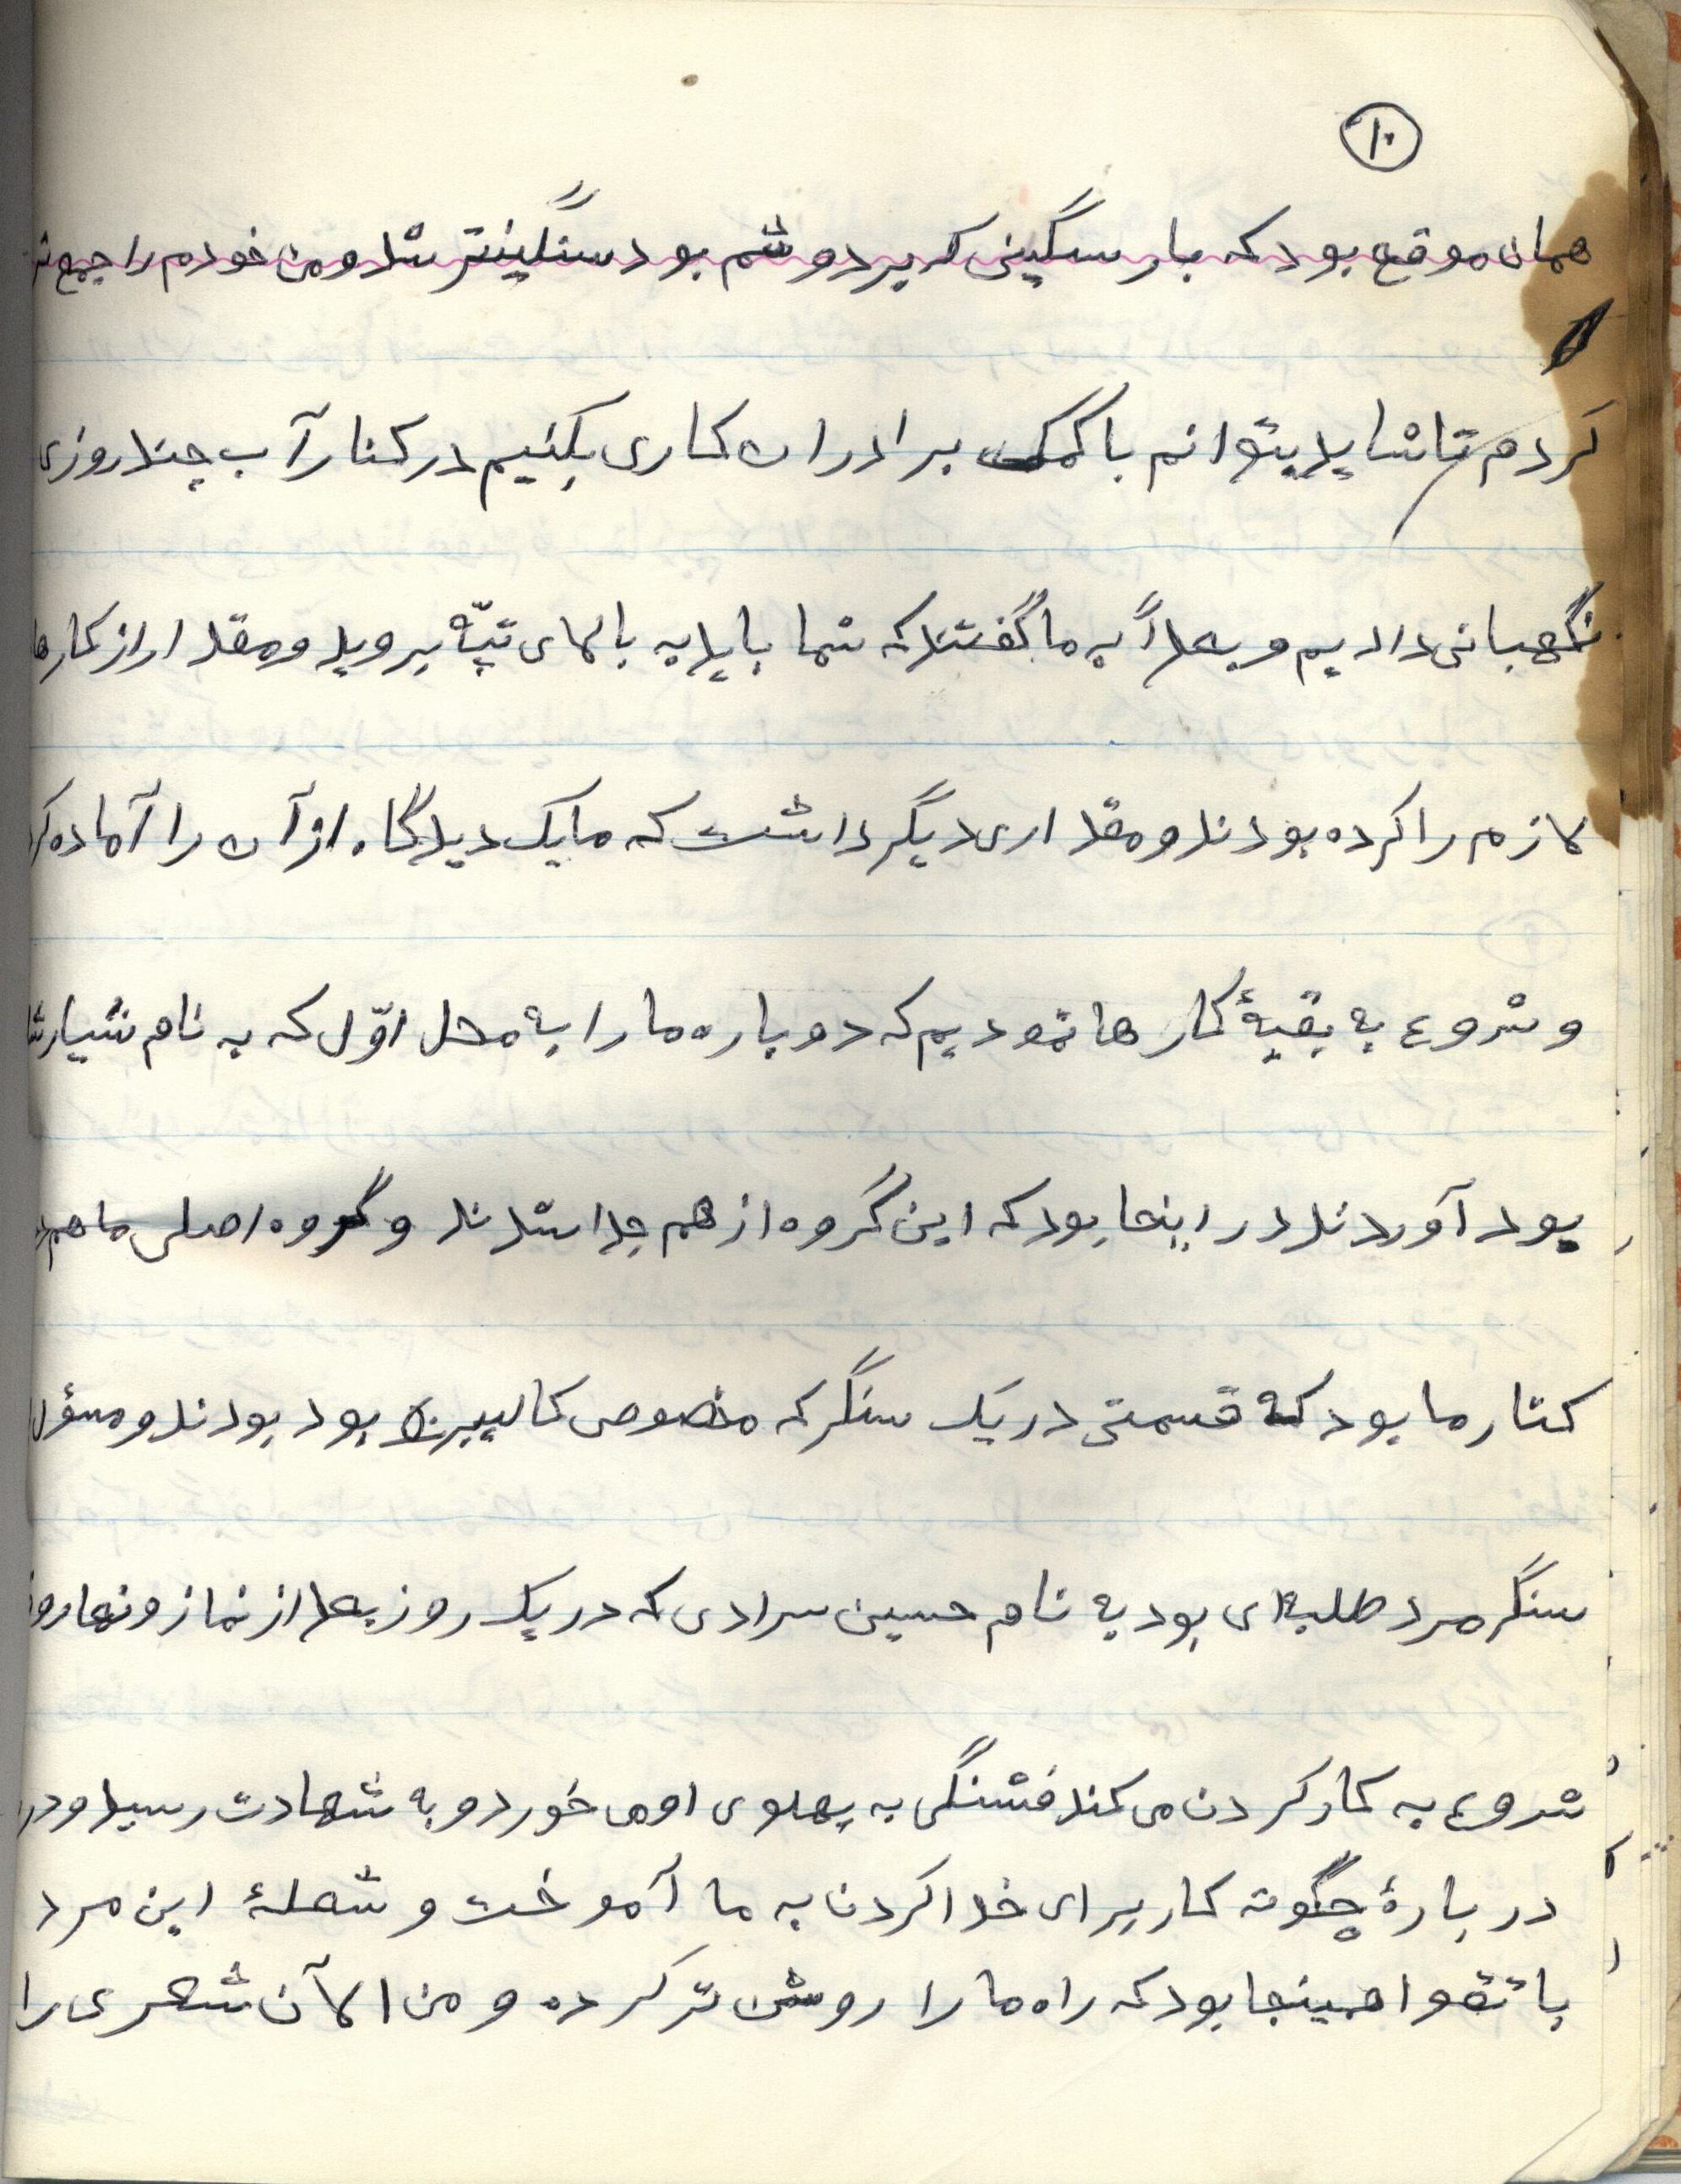 ۱۰
همان موقع بود که بار سگینی که بر دوشم بود سنگینتر شد و من خودم را جمع تر
کردم تا شاید بتوانم با کمک برادران کاری بکنیم در کنار آب چند روزی
نگهبانی دادیم و بعداً به ما گفتند که شما باید به بالای تپّه بروید و مقدار از کارها
لازم را کرده بودند و مقداری دیگر داشت که ما یک دیدگاه از آن را آماده کر
و شروع به بقیهٔ کار ها نمودیم که دوباره ما را به محل اوّل که به نام شیار
بود آوردند در اینجا بود که این گروه از هم جدا شدند و گروه اصلی ما هم
کنار ما بود که قسمتی در یک سنگر که مخصوص کالیبر بود بودند و مسؤل
سنگر مرد طلبه‌ای بود به نام حسین سرادی که در یک روز بعد از نماز و نهار
شروع به کار کردن می کند فشنگی به پهلوی او می خورد و به شهادت رسید و در
دربارهٔ چگونه کار برای خدا کردن به ما آموخت و شعلهٔ این مرد
با تقوا همینجا بود که راه ما را روشن تر کرده و من الآن شعری را